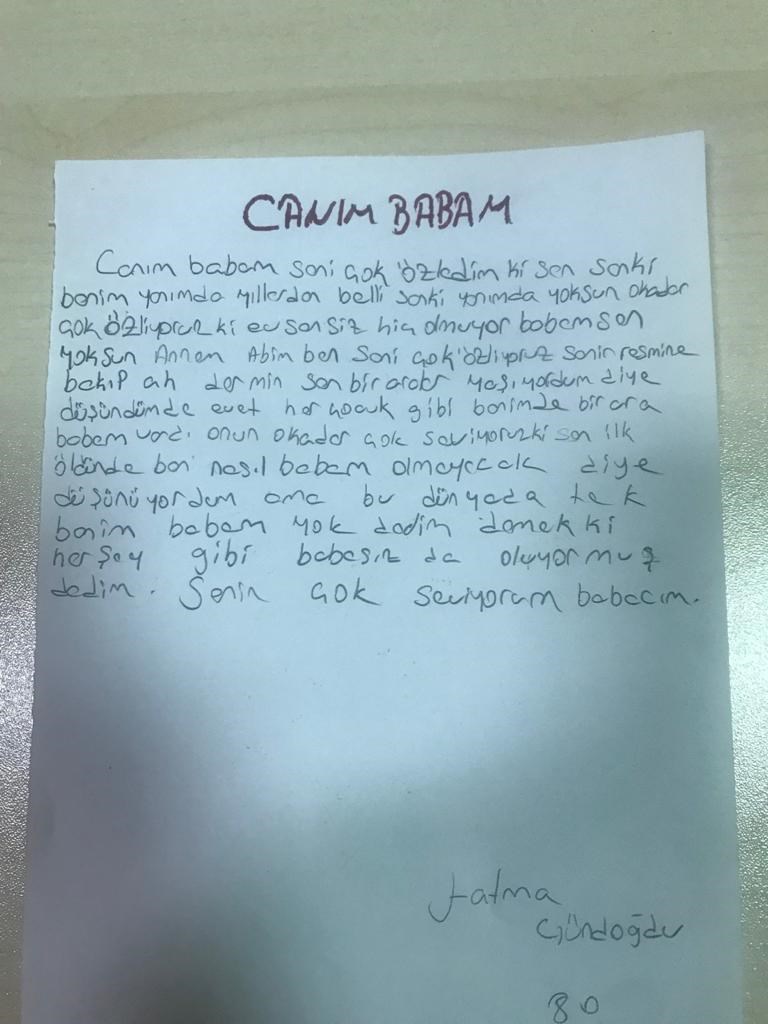 CANIM BABAM
Canım babam seni çok özledim ki sen sanki
benim yanımda yıllardan belli sanki yanımda yoksun okadar
çok özlüyoruz ki ev sensiz hiç olmuyor babam sen
yoksun Annem Abim ben seni çok özlüyoruz senin resmine
bakıp ah dermin sen bir arabr yaşıyordum diye
düşündümde evet her çocuk gibi benimde bir ara
babam vardı onun okadar çok seviyoruzki sen ilk
öldünde ben nasıl babam olmayacak diye
düşünüyordum ama bu dünyada tek
benim babam yok dedim demek ki
herşey gibi babasız da oluyormuş
dedim. Senin çok seviyoram babacım.
Fatma
Gündoğdu
80